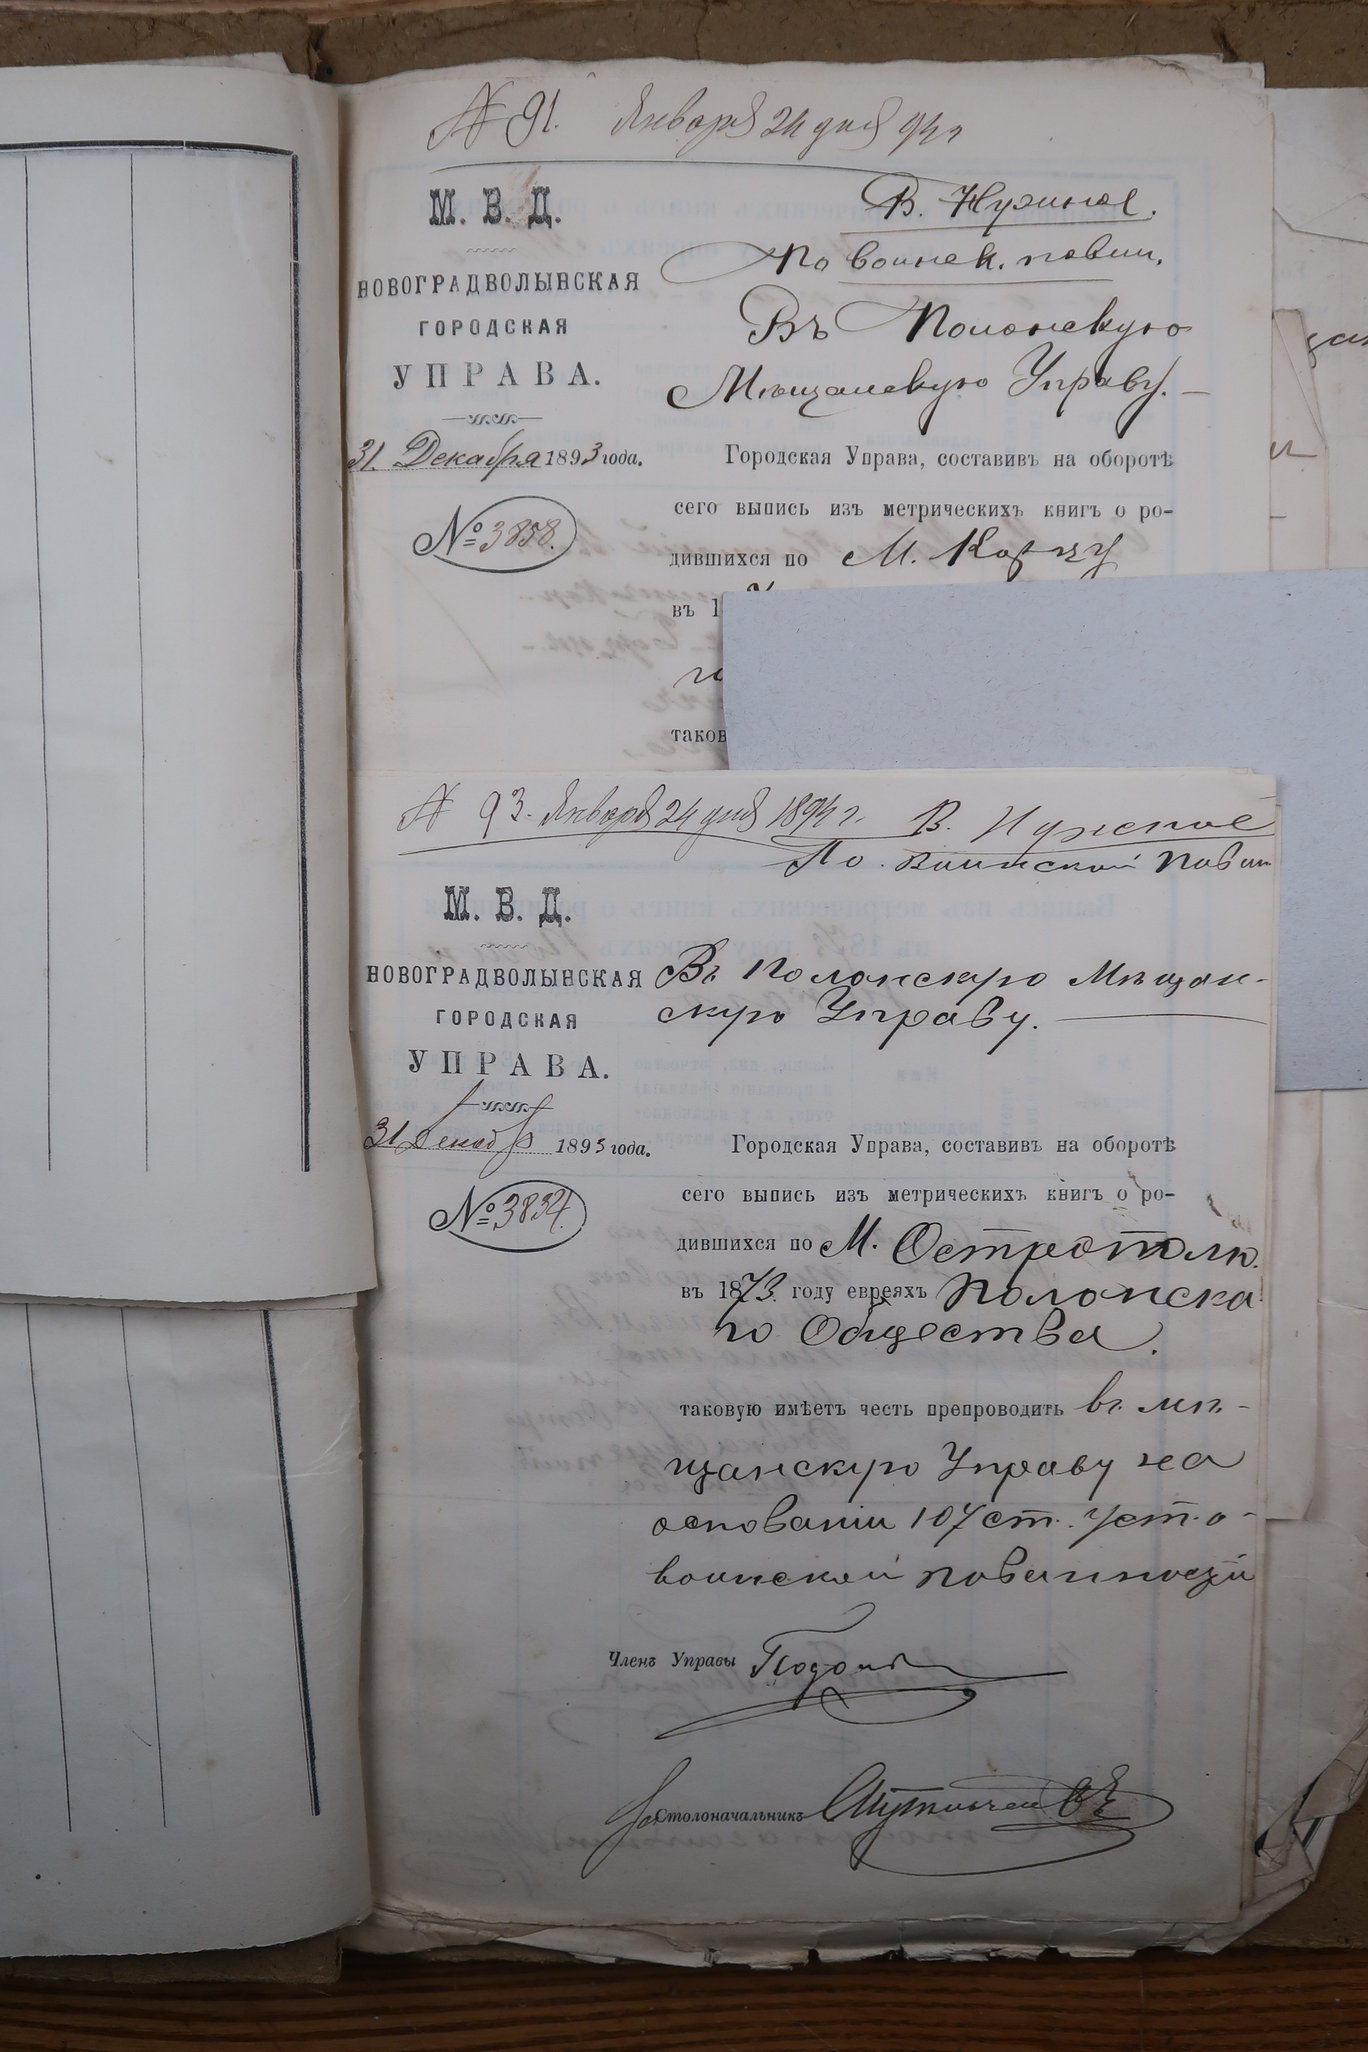 № 91. Января 24 дня 94 г
М. В. Д.
НОВОГРАДВОЛЫНСКАЯ
ГОРОДСКАЯ
УПРАВА.
31. Декабря 1893 года.
№ 3858.
В. Нужное.
По воинск. повин.
Въ Полонскую
Мѣщанскую Управу. —
Городская Управа, составивъ на оборотѣ
сего выпись изъ метрическихъ книгъ о ро-
дившихся по М. Корцу
въ 1
таков
№ 93. Января 24 дня 1894 г. В. Нужное
По воинской повин
М. В. Д.
НОВОГРАДВОЛЫНСКАЯ
ГОРОДСКАЯ
УПРАВА.
31 Декабр 1893 года.
№ 3834.
Въ Полонскую Мѣщан-
скую Управу.
Городская Управа, составивъ на оборотѣ
сего выпись изъ метрическихъ книгъ о ро-
дившихся по М. Острополю
въ 1873 году евреяхъ Полонска
го Общества.
таковую имѣетъ честь препроводить въ мѣ-
щанскую Управу на
основаніи 107 ст. Уст. о
воинской повинности
Членъ Управы
Столоначальникъ